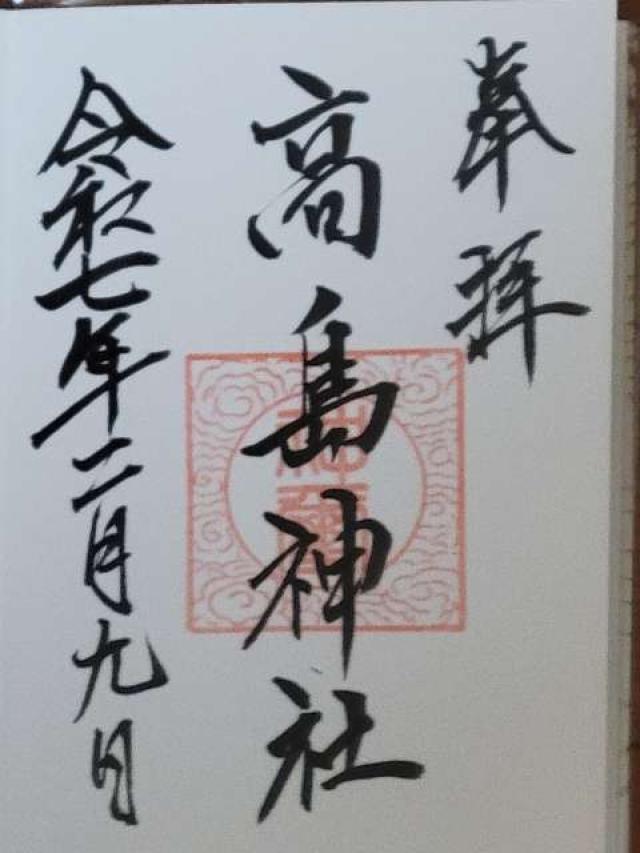 奉拝
高島神社
令和七年二月九日